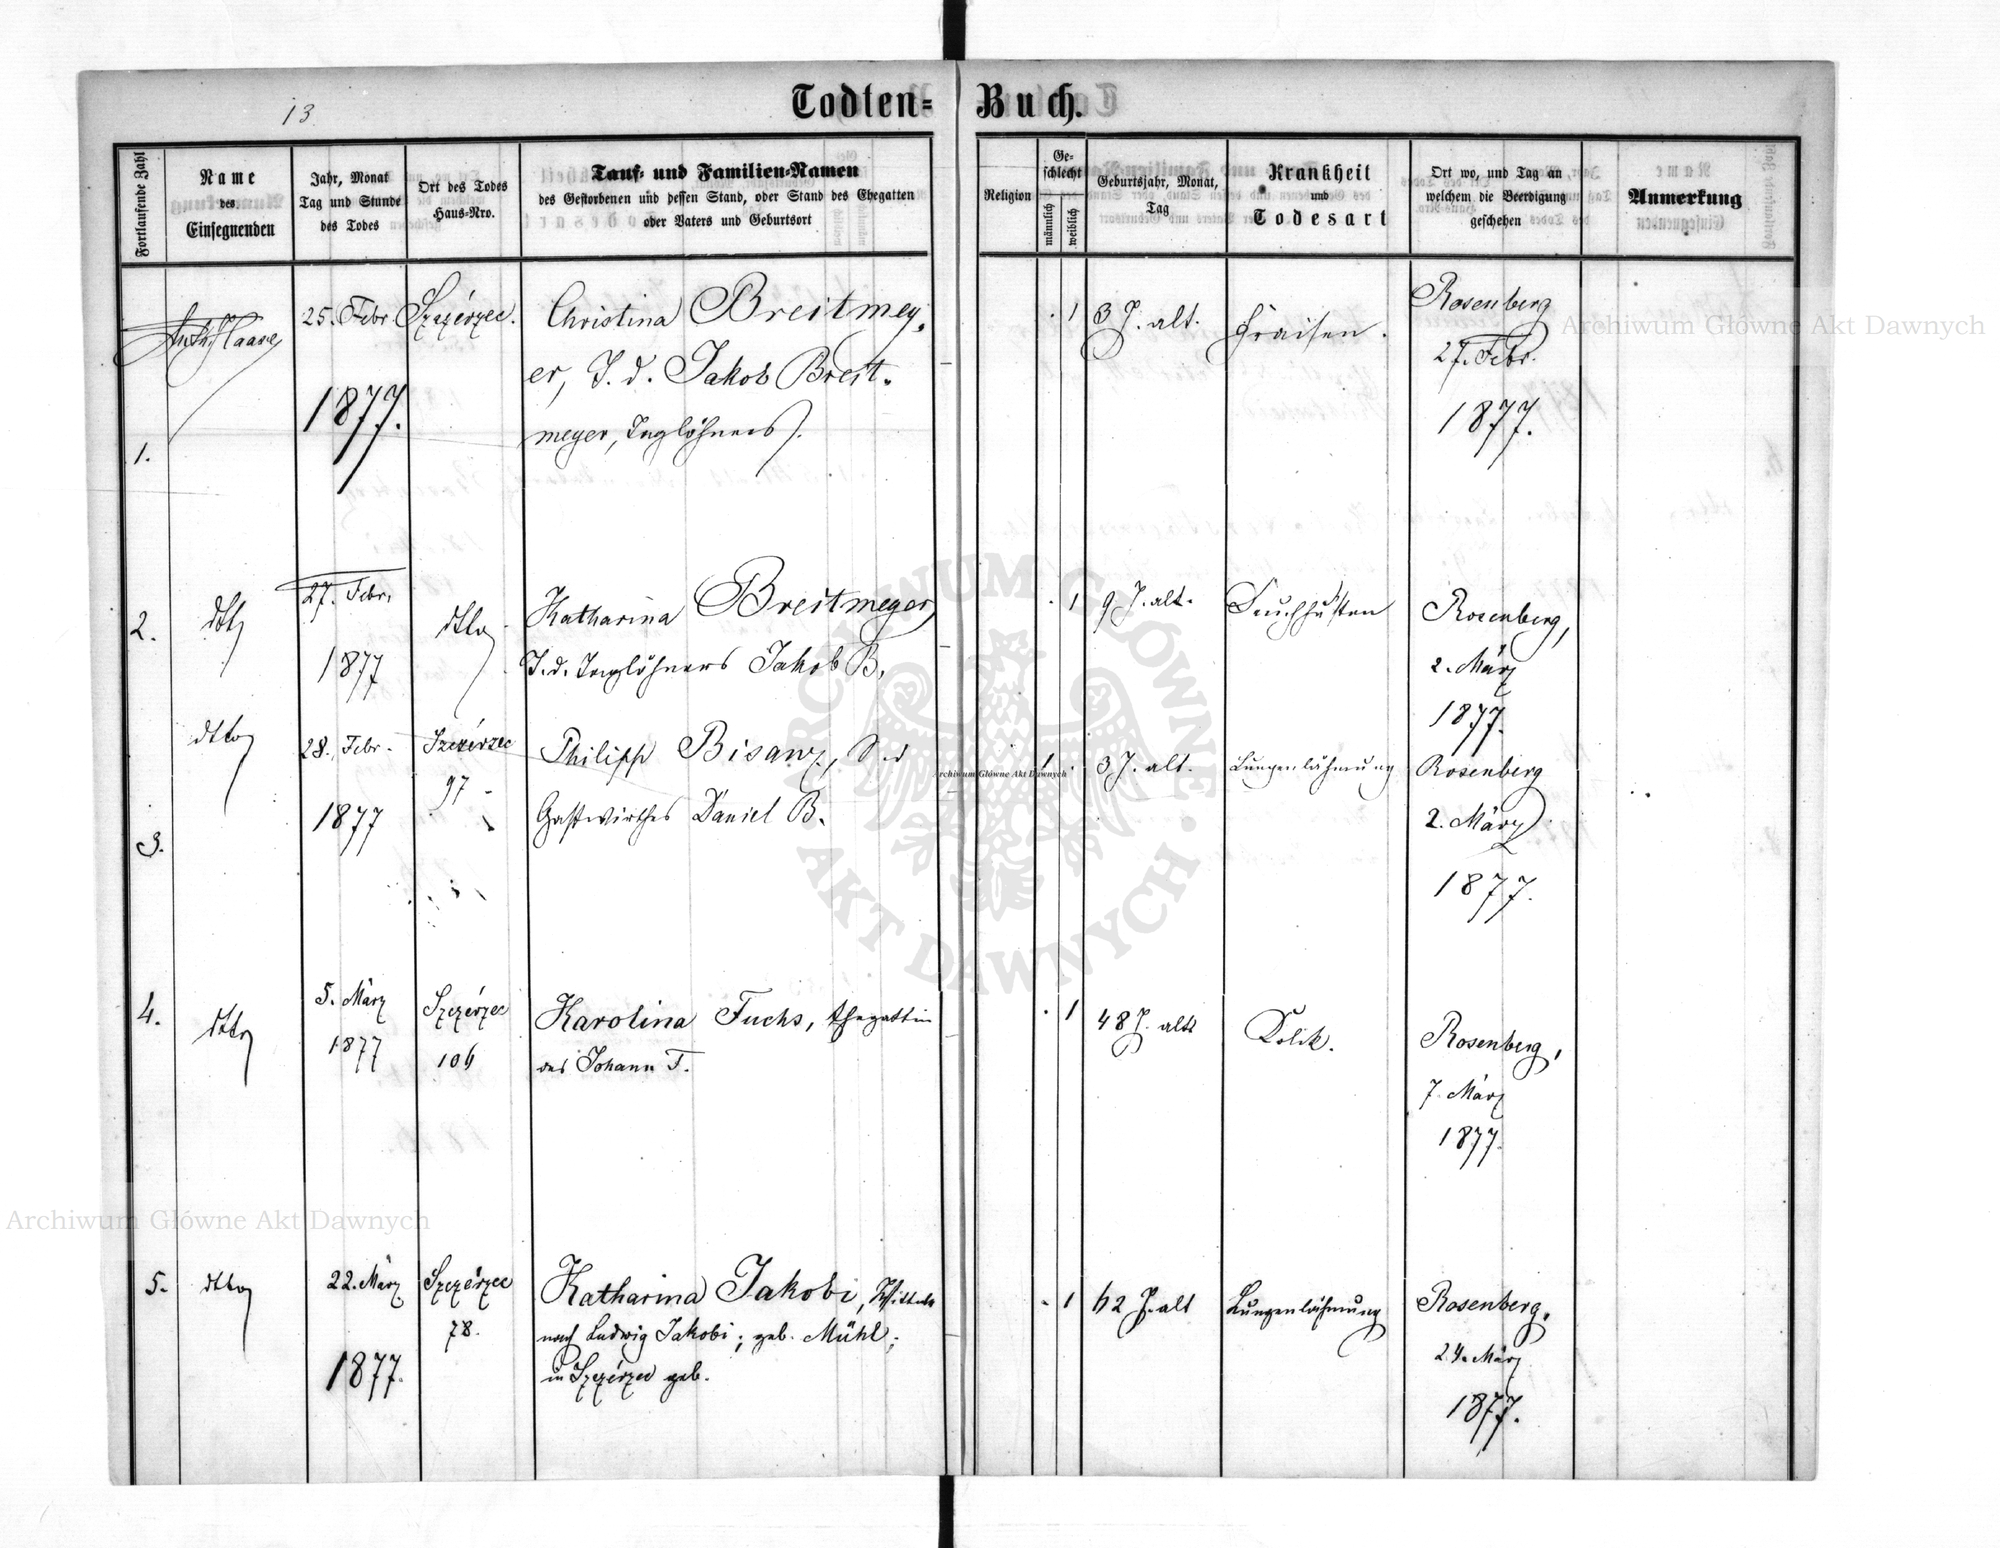 13
Todten-Buch.
Fortlaufende Zahl
Name
des
Einsegnenden
Jahr, Monat
Tag und Stunde
des Todes
Ort des Todes
Haus-Nro.
Tauf- und Familien-Namen
des Gestorbenen und dessen Stand, oder Stand des Ehegatten
oder Vaters und Geburtsort
Religion
Ge-
schlecht
männlich
weiblich
Geburtsjahr, Monat,
Tag
Krankheit
und
Todesart
Ort wo, und Tag an
welchem die Beerdigung
geschehen
Anmerkung
1.
25. Febr
1877.
Szczérzec.
Christina Breitmey-
er, T. d. Jakob Breit-
meyer, Taglöhners.
. 1
3 J. alt.
Fraisen.
Rosenberg
27. Febr.
1877.
2.
dtto
27. Febr.
1877
dtto
Katharina Breitmeyer,
T. d. Taglöhners Jakob B.
. 1
9 J. alt.
Keuchhusten
Rosenberg,
2. März
1877.
3.
dtto
28. Febr.
1877
Szczérzec
97
Philipp Bisanz, S. d
Gastwirthes Daniel B.
1 .
3 J. alt.
Lungenlähmung
Rosenberg
2. März
1877.
4.
dtto
5. März
1877
Szczérzec
106
Karolina Fuchs, Ehegattin
des Johann F.
. 1
48 J. alt
Kolik.
Rosenberg,
7. März
1877.
5.
dtto
22. März
1877.
Szczérzec
78.
Katharina Jakobi, Wittwe
nach Ludwig Jakobi; geb. Mühl;
in Szczérzec geb.
. 1
62 J. alt
Lungenlähmung
Rosenberg,
24. März
1877.
Archiwum Główne Akt Dawnych
Archiwum Główne Akt Dawnych
Archiwum Główne Akt Dawnych
ARCHIWUM GŁÓWNE · AKT DAWNYCH ·